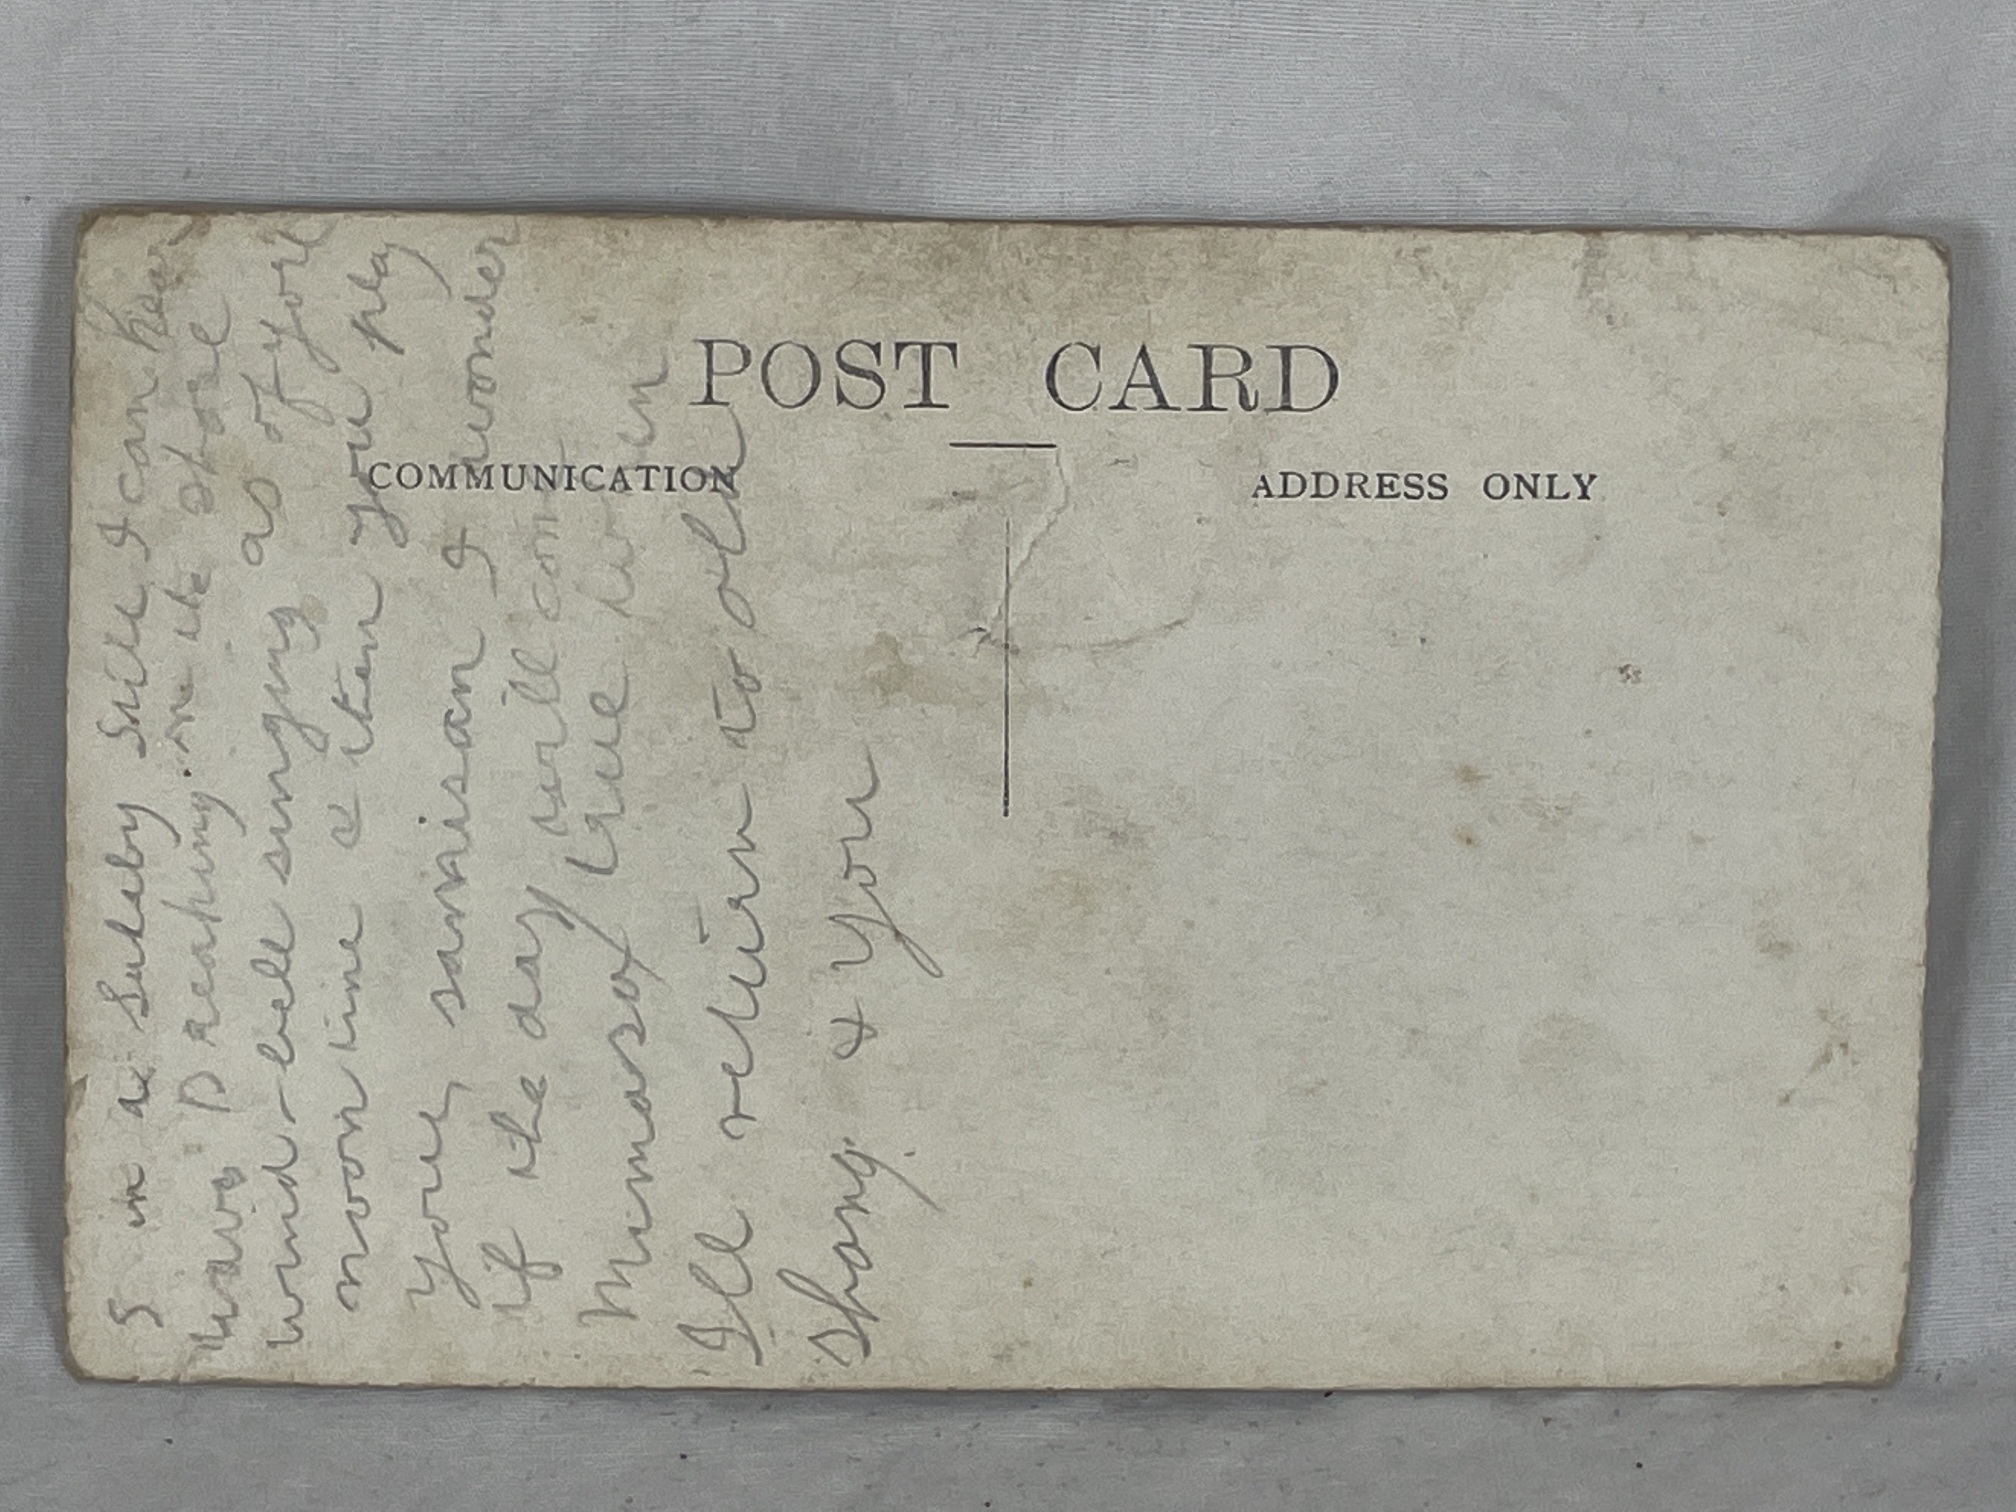 POST CARD
COMMUNICATION
ADDRESS ONLY
in a Lulaby Still I can hear
waves Breaking on the shore
wind-bell singing as of yore
moon time & then you play
your samisan I wonder
if the day will come
Mimasoy true when
I'll return to old
Shang. & You